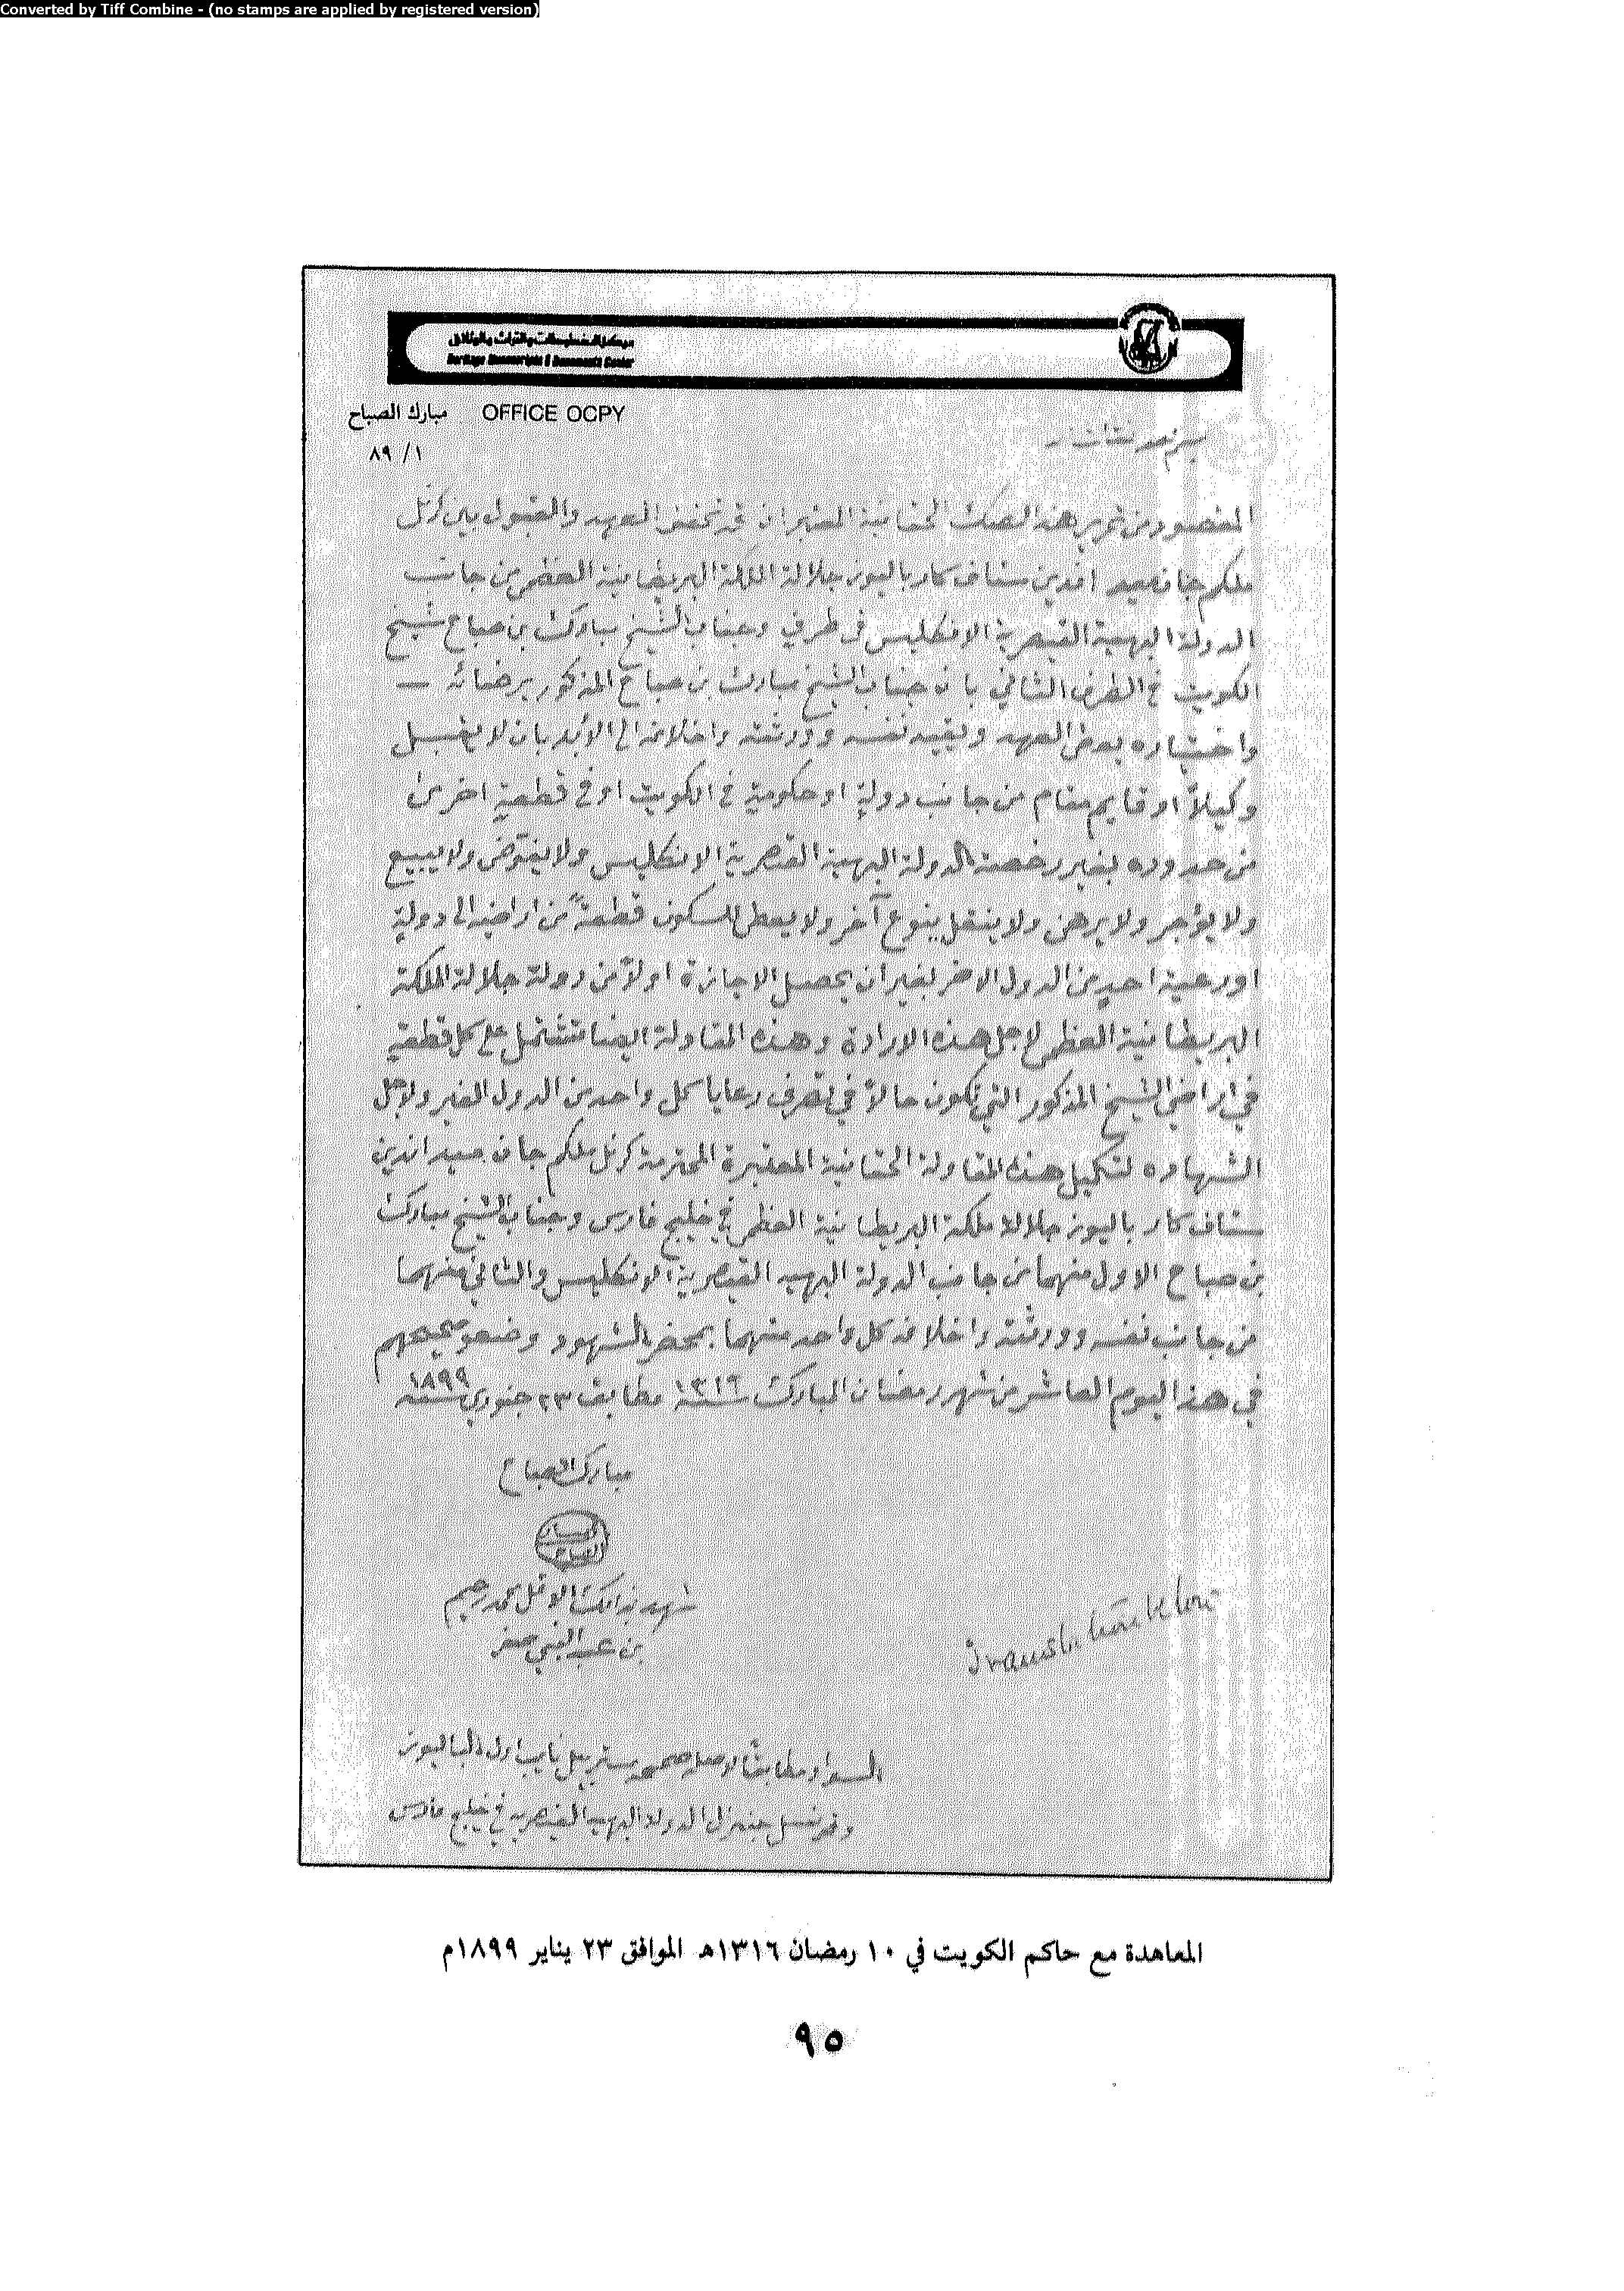 Converted by Tiff Combine - (no stamps are applied by registered version)
مركز المخطوطات والتراث والوثائق
Heritage Manuscripts & Documents Center
مبارك الصباح OFFICE OCPY
٨٩ /١
المقصود من تحرير هذه الصك الحقانية المعتبر ان قد تحقق العهد والقبول بين كرنل
ملكم جان ميد افندين ستاف كار باليوز جلالة الملكة البريطانية العظمى من جانب
الدولة البهية القيصرية الانكليس في طرفي وجناب الشيخ مبارك بن صباح شيخ
الكويت في الطرف الثاني بانه جناب الشيخ مبارك بن صباح المذكور برضائه –
واختياره يعطى العهد ويقيد نفسه وورثته واخلافه الى الأبد بان لا يقبل
وكيلاً او قايم مقام من جانب دولةٍ او حكومةٍ في الكويت او في قطعةٍ اخرى
من حدوده بغير رخصة الدولة البهية القيصرية الانكليس ولا يفوّض ولا يبيع
ولا يؤجر ولا يرهن ولا ينقل بنوع آخر ولا يعطى للسكون قطعةً من اراضيه الى دولةٍ
او رعية احدٍ من الدول الاخر بغير ان يحصل الاجازة اولاً من دولة جلالة الملكة
البريطانية العظمى لاجل هذه الارادة وهذه المقاولة ايضا تشتمل على كل قطعةٍ
في اراضي الشيخ المذكور التي تكون حالاً في تصرف رعايا كل واحد من الدول الغير ولاجل
الشهاده لتكميل هذه المقاولة الحقانية المعتبرة المحترمة كرنل ملكم جان ميد اندين
ستاف كار باليوز جلالة ملكة البريطانية العظمى في خليج فارس وجناب الشيخ مبارك
بن صباح الاول منهما من جانب الدولة البهيه القيصرية الانكليس والثاني منهما
من جانب نفسه وورثته واخلافه كل واحد منهما بمحضر الشهود وضعو صحيحهم
في هذا اليوم العاشر من شهر رمضان المبارك سنة ١٣١٦ مطابق ٢٣ جنوري سنة ١٨٩٩
مبارك الصباح
مبارك
الصباح
شهد بذالك الاقل محمد رحيم
بن عبد النبي صفر
السواد مطابق لاصله صحيحه نايب اول الباليوز
وقونسل جنرال الدولة البهيه القيصريه في خليج فارس
المعاهدة مع حاكم الكويت في ١٠ رمضان ١٣١٦هـ الموافق ٢٣ يناير ١٨٩٩م
٩٥